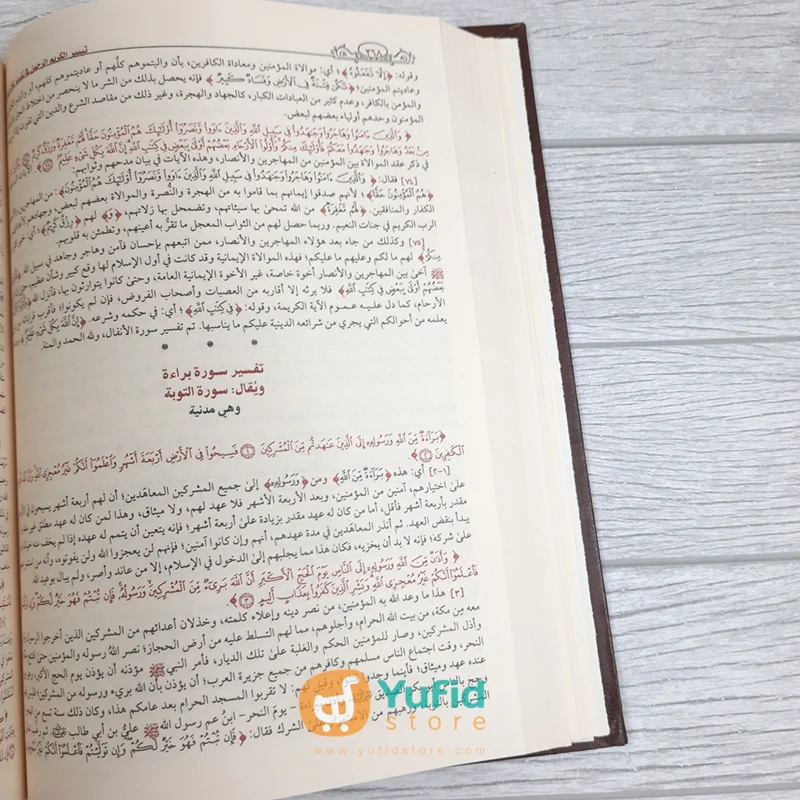 تيسير الكريم الرحمن
٣٦٨
وقوله: ﴿إِلَّا تَفْعَلُوهُ﴾؛ أي: موالاة المؤمنين ومعاداة الكافرين، بأن واليتموهم كلَّهم أو عاديتموهم كلهم، أو واليتم
وعاديتم المؤمنين؛ ﴿تَكُن فِتْنَةٌ فِي الْأَرْضِ وَفَسَادٌ كَبِيرٌ﴾ فإنه يحصل بذلك من الشر ما لا ينحصر من اختلاط
والمؤمن بالكافر، وعدم كثير من العبادات الكبار، كالجهاد والهجرة، وغير ذلك من مقاصد الشرع والدين التي تفوت
المؤمنون وحدهم أولياء بعضهم لبعض.
﴿وَالَّذِينَ ءَامَنُوا وَهَاجَرُوا وَجَهَدُوا فِي سَبِيلِ اللَّهِ وَالَّذِينَ ءَاوَوا وَّنَصَرُوا أُولَئِكَ هُمُ الْمُؤْمِنُونَ حَقًّا لَّهُم مَّغْفِرَةٌ وَرِزْقٌ كَرِيمٌ
مِن بَعْدُ وَهَاجَرُوا وَجَهَدُوا مَعَكُمْ فَأُولَئِكَ مِنكُمْ وَأُولُوا الْأَرْحَامِ بَعْضُهُمْ أَوْلَى بِبَعْضٍ فِي كِتَبِ اللَّهِ إِنَّ اللَّهَ بِكُلِّ شَيْءٍ عَلِيمٌ
في ذكر عقد الموالاة بين المؤمنين من المهاجرين والأنصار، وهذه الآيات في بيان مدحهم وثوابهم:
[٧٤] فقال: ﴿وَالَّذِينَ ءَامَنُوا وَهَاجَرُوا وَجَهَدُوا فِي سَبِيلِ اللَّهِ وَالَّذِينَ ءَاوَوا وَّنَصَرُوا أُولَئِكَ هُمُ الْمُؤْمِنُونَ﴾ من المهاجرين
﴿هُمُ الْمُؤْمِنُونَ حَقًّا﴾؛ لأنهم صدقوا إيمانهم بما قاموا به من الهجرة والنُّصرة والموالاة بعضهم لبعض، وجهادهم
الكفار والمنافقين. ﴿لَّهُم مَّغْفِرَةٌ﴾ من الله تمحىٰ بها سيئاتهم، وتضمحل بها زلاتهم، ﴿وَ﴾ لهم ﴿رِزْقٌ كَرِيمٌ﴾؛ أي: خير
الرب الكريم في جنات النعيم. وربما حصل لهم من الثواب المعجل ما تقرُّ به أعينهم، وتطمئن به قلوبهم.
[٧٥] وكذلك من جاء بعد هؤلاء المهاجرين والأنصار، ممن اتبعهم بإحسان فآمن وهاجر وجاهد في سبيل
مِنكُمْ﴾ لهم ما لكم وعليهم ما عليكم؛ فهذه الموالاة الإيمانية وقد كانت في أول الإسلام لها وقع كبير وشأن عظيم
ﷺ آخىٰ بين المهاجرين والأنصار أخوة خاصة، غير الأخوة الإيمانية العامة، وحتىٰ كانوا يتوارثون بها، فأنزل الله
بَعْضُهُمْ أَوْلَى بِبَعْضٍ فِي كِتَبِ اللَّهِ﴾ فلا يرثه إلا أقاربه من العصبات وأصحاب الفروض، فإن لم يكونوا؛ فأقرب قراباته
الأرحام، كما دل عليه عموم الآية الكريمة، وقوله: ﴿فِي كِتَبِ اللَّهِ﴾؛ أي: في حكمه وشرعه. ﴿إِنَّ اللَّهَ بِكُلِّ شَيْءٍ عَلِيمٌ
يعلمه من أحوالكم التي يجري من شرائعه الدينية عليكم ما يناسبها. تم تفسير سورة الأنفال، ولله الحمد والمنة.
تفسير سورة براءة
ويُقال: سورة التوبة
وهي مدنية
﴿بَرَاءَةٌ مِّنَ اللَّهِ وَرَسُولِهِ إِلَى الَّذِينَ عَهَدتُّم مِّنَ الْمُشْرِكِينَ ۝١ فَسِيحُوا فِي الْأَرْضِ أَرْبَعَةَ أَشْهُرٍ وَاعْلَمُوا أَنَّكُمْ غَيْرُ مُعْجِزِي اللَّهِ
الْكَفِرِينَ ۝٢﴾.
[١-٢] أي: هذه ﴿بَرَاءَةٌ مِّنَ اللَّهِ﴾ ومن ﴿وَرَسُولِهِ﴾ إلىٰ جميع المشركين المعاهَدين؛ أن لهم أربعة أشهر يسيحون
علىٰ اختيارهم، آمنين من المؤمنين، وبعد الأربعة الأشهر فلا عهد لهم، ولا ميثاق، وهذا لمن كان له عهد مطلق
مقدر بأربعة أشهر فأقل، أما من كان له عهد مقدر بزيادة علىٰ أربعة أشهر؛ فإنه يتعين أن يتمم له عهده إذا لم يخف منه
يبدأ بنقض العهد. ثم أنذر المعاهَدين في مدة عهدهم، أنهم وإن كانوا آمنين؛ فإنهم لن يعجزوا الله ولن يفوتوه، وأنه
علىٰ شركه؛ فإنه لا بد أن يخزيه، فكان هذا مما يجلبهم إلىٰ الدخول في الإسلام، إلا من عاند وأصر، ولم يبال بوعيد الله.
﴿وَأَذَنٌ مِّنَ اللَّهِ وَرَسُولِهِ إِلَى النَّاسِ يَوْمَ الْحَجِّ الْأَكْبَرِ أَنَّ اللَّهَ بَرِيءٌ مِّنَ الْمُشْرِكِينَ وَرَسُولُهُ فَإِن تُبْتُمْ فَهُوَ خَيْرٌ لَّكُمْ وَإِن
فَاعْلَمُوا أَنَّكُمْ غَيْرُ مُعْجِزِي اللَّهِ وَبَشِّرِ الَّذِينَ كَفَرُوا بِعَذَابٍ أَلِيمٍ ۝٣﴾
[٣] هذا ما وعد الله به المؤمنين، من نصر دينه وإعلاء كلمته، وخذلان أعدائهم من المشركين الذين أخرجوا الرسول
معه من مكة، من بيت الله الحرام، وأجلوهم، مما لهم التسلط عليه من أرض الحجاز؛ نصر الله رسوله والمؤمنين حتىٰ
وأذل المشركين، وصار للمؤمنين الحكم والغلبة علىٰ تلك الديار، فأمر النبي ﷺ مؤذنه أن يؤذن يوم الحج الأكبر،
النحر، وقت اجتماع الناس مسلمهم وكافرهم من جميع جزيرة العرب؛ أن يؤذن بأن الله بريء ورسوله من المشركين
عنده عهد وميثاق؛ فأينما وجدوا قتلوا، وقيل لهم: لا تقربوا المسجد الحرام بعد عامكم هذا، وكان ذلك سنة تسع
وحج بالناس أبو بكر الصديق - يوم النحر- ابنُ عم رسول الله ﷺ علي بن أبي طالب
المشركين بالتوبة ورهبهم من الشرك فقال: ﴿فَإِن تُبْتُمْ فَهُوَ خَيْرٌ لَّكُمْ وَإِن تَوَلَّيْتُمْ فَاعْلَمُوا أَنَّكُمْ غَيْرُ
Yufid
store
www.yufidstore.com